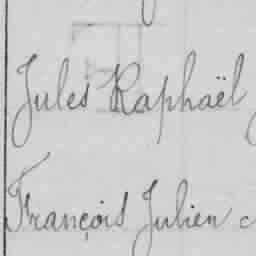 Jules Raphaël
François Julien